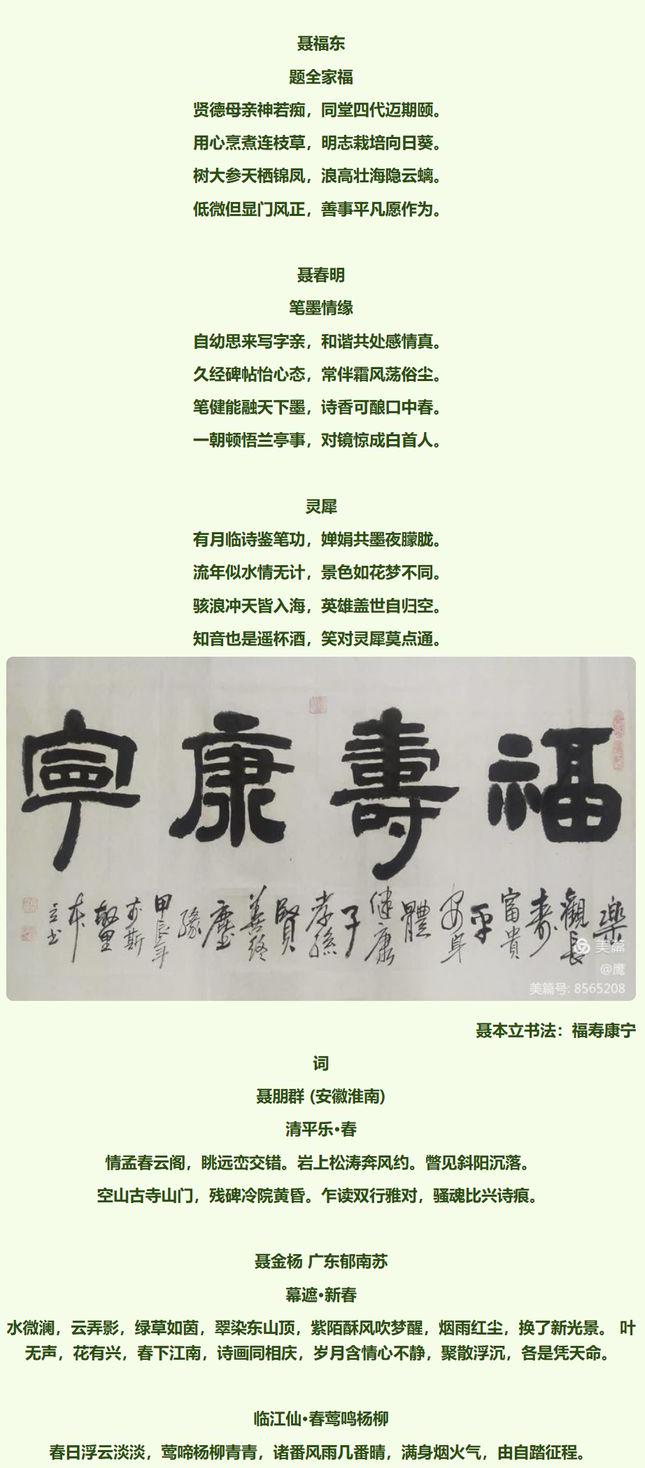 聂福东
题全家福
贤德母亲神若痴，同堂四代迈期颐。
用心烹煮连枝草，明志栽培向日葵。
树大参天栖锦凤，浪高壮海隐云螭。
低微但显门风正，善事平凡愿作为。
聂春明
笔墨情缘
自幼思来写字亲，和谐共处感情真。
久经碑帖怡心态，常伴霜风荡俗尘。
笔健能融天下墨，诗香可酿口中春。
一朝顿悟兰亭事，对镜惊成白首人。
灵犀
有月临诗鉴笔功，婵娟共墨夜朦胧。
流年似水情无计，景色如花梦不同。
骇浪冲天皆入海，英雄盖世自归空。
知音也是遥杯酒，笑对灵犀莫点通。
福壽康寧
樂觀長壽富貴平安身體健康子孝孫賢善終塵緣
甲辰年
本立书
美篇
@鹰
美篇号: 8565208
聂本立书法：福寿康宁
词
聂朋群 (安徽淮南)
清平乐·春
情孟春云阁，眺远峦交错。岩上松涛奔风约。瞥见斜阳沉落。
空山古寺山门，残碑冷院黄昏。乍读双行雅对，骚魂比兴诗痕。
聂金杨 广东郁南苏
幕遮·新春
水微澜，云弄影，绿草如茵，翠染东山顶，紫陌酥风吹梦醒，烟雨红尘，换了新光景。 叶
无声，花有兴，春下江南，诗画同相庆，岁月含情心不静，聚散浮沉，各是凭天命。
临江仙·春莺鸣杨柳
春日浮云淡淡，莺啼杨柳青青，诸番风雨几番晴，满身烟火气，由自踏征程。